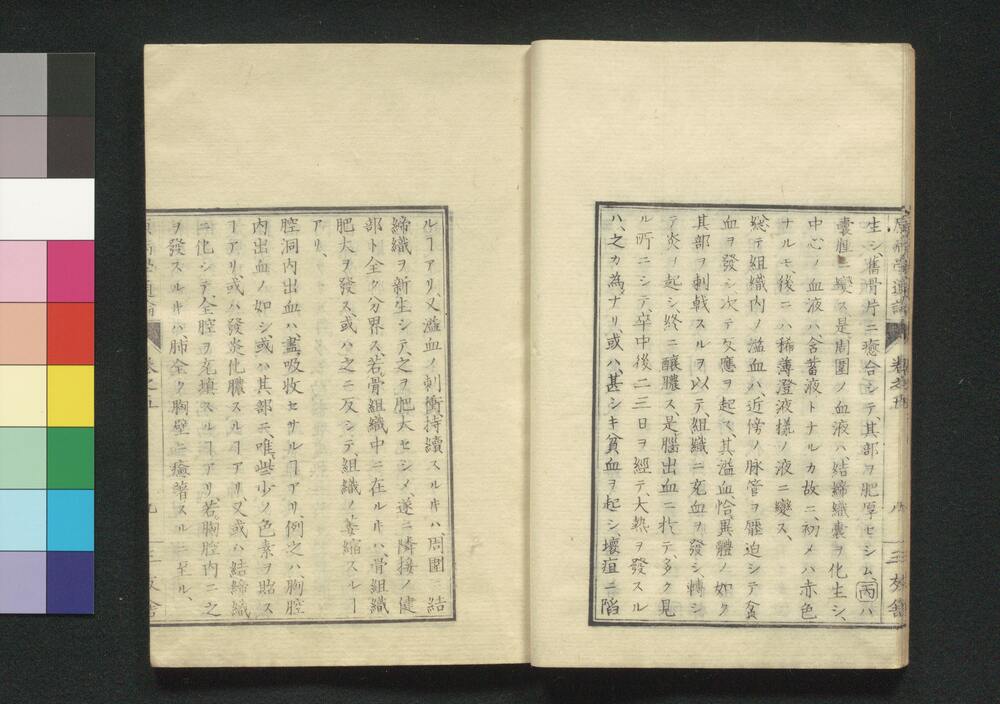 生シ、舊骨片ニ癒合シテ其部ヲ肥厚セシム、丙ハ
嚢腫ニ變ス、是周圍ノ血液ハ、結締織嚢ヲ化生シ、
中心ノ血液ハ、含蓄液トナルカ故ニ、初メハ赤色
ナルモ後ニハ稀薄澄液様ノ液ニ變ス、
総テ組織内ノ溢血ハ、近傍ノ脉管ヲ壓迫シテ貧
血ヲ發シ次テ反應ヲ起ス、其溢血恰異體ノ如ク
其部ヲ刺戟スルヲ以テ、組織ニ充血ヲ發シ轉シ
テ炎ヲ起シ、終ニ釀膿ス、是腦出血ニ於テ、多ク見
ル所ニシテ、卒中後二三日ヲ經テ、大熱ヲ發スル
ハ、之カ為ナリ、或ハ、甚シキ貧血ヲ起シ壞疽ニ陷
ルヿアリ、又溢血ノ刺衝持續スルキハ周圍ニ結
締織ヲ新生シテ、之ヲ肥大セシメ遂ニ隣接ノ健
部ト全ク分界ス、若骨組織中ニ在ルキハ、骨組織
肥大ヲ發ス、或ハ之ニ反シテ、組織ノ萎縮スルヿ
アリ、
腔洞内出血ハ、盡吸收セサルヿアリ、例之ハ胸腔
内出血ノ如シ、或ハ其部ニ、唯些少ノ色素ヲ貽ス
ヿアリ、或ハ發炎化膿スルヿアリ、又或ハ結締織
ニ化シテ、全腔ヲ充填スルヿアリ、若胸腔内ニ之
ヲ發スルキハ肺全ク胸壁ニ癒着スルニ至ル、